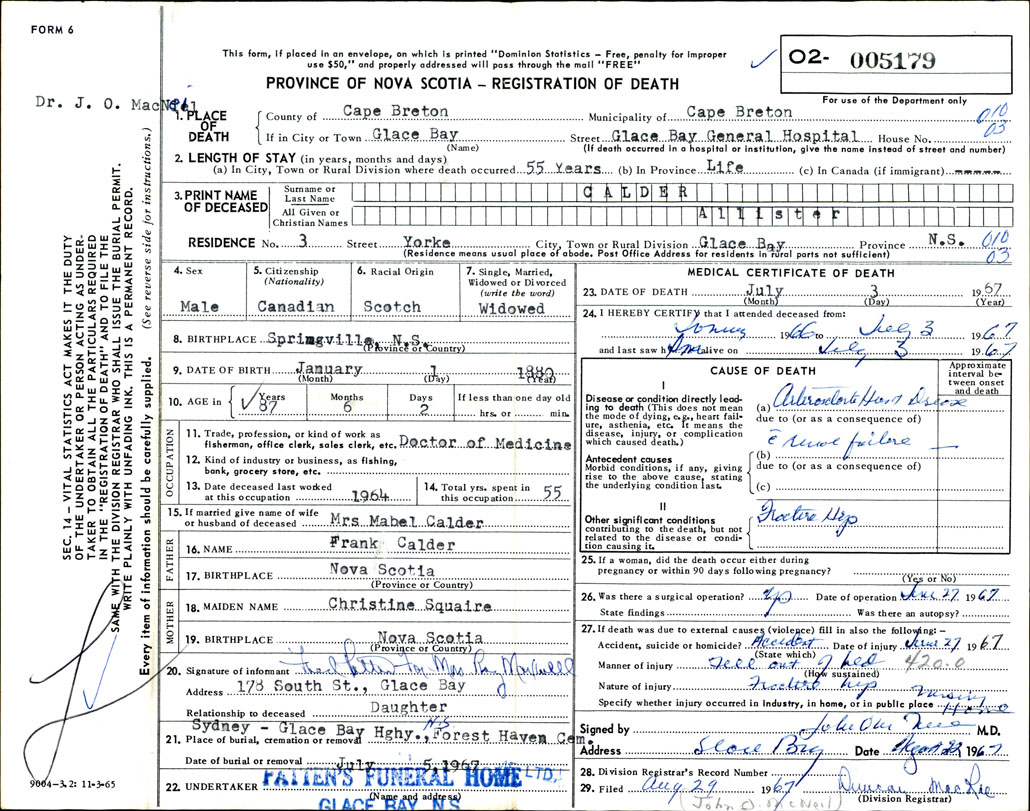 FORM 6
This form, if placed in an envelope, on which is printed "Dominion Statistics – Free, penalty for improper
use $50," and properly addressed will pass through the mail "FREE"
02- 005179
For use of the Department only
PROVINCE OF NOVA SCOTIA – REGISTRATION OF DEATH
Dr. J. O. MacNeil
1. PLACE OF DEATH
County of Cape Breton Municipality of Cape Breton 010
If in City or Town Glace Bay Street Glace Bay General Hospital House No. 03
(Name) (If death occurred in a hospital or institution, give the name instead of street and number)
2. LENGTH OF STAY (in years, months and days)
(a) In City, Town or Rural Division where death occurred 55 Years (b) In Province Life (c) In Canada (if immigrant) -----
3. PRINT NAME OF DECEASED
Surname or Last Name CALDER
All Given or Christian Names Allister
RESIDENCE No. 3 Street Yorke City, Town or Rural Division Glace Bay Province N.S. 010
(Residence means usual place of abode. Post Office Address for residents in rural parts not sufficient) 03
4. Sex
Male
5. Citizenship (Nationality)
Canadian
6. Racial Origin
Scotch
7. Single, Married, Widowed or Divorced (write the word)
Widowed
8. BIRTHPLACE Springville, N.S.
(Province or Country)
9. DATE OF BIRTH January 1 1880
(Month) (Day) (Year)
10. AGE in Years Months Days If less than one day old
87 6 2 hrs. or min.
OCCUPATION
11. Trade, profession, or kind of work as
fisherman, office clerk, sales clerk, etc. Doctor of Medicine
12. Kind of industry or business, as fishing,
bank, grocery store, etc.
13. Date deceased last worked
at this occupation 1964
14. Total yrs. spent in
this occupation 55
15. If married give name of wife
or husband of deceased Mrs Mabel Calder
FATHER
16. NAME Frank Calder
17. BIRTHPLACE Nova Scotia
(Province or Country)
MOTHER
18. MAIDEN NAME Christine Squaire
19. BIRTHPLACE Nova Scotia
(Province or Country)
20. Signature of informant
Address 178 South St., Glace Bay
Relationship to deceased Daughter
Sydney - Glace Bay Hghy., N.S. Forest Haven Cem.
21. Place of burial, cremation or removal
Date of burial or removal July 5 1967
22. UNDERTAKER PATTEN'S FUNERAL HOME LTD.,
(Name and address)
GLACE BAY, N.S.
MEDICAL CERTIFICATE OF DEATH
23. DATE OF DEATH July 3 1967
(Month) (Day) (Year)
24. I HEREBY CERTIFY that I attended deceased from:
1966 to July 3 1967
and last saw him alive on July 3 1967
CAUSE OF DEATH
Approximate interval between onset and death
I
Disease or condition directly leading
to death (This does not mean
the mode of dying, e.g., heart failure,
asthenia, etc. It means the
disease, injury, or complication
which caused death.)
(a) Heart Disease
due to (or as a consequence of)
failure
Antecedent causes
Morbid conditions, if any, giving
rise to the above cause, stating
the underlying condition last.
(b)
due to (or as a consequence of)
(c)
II
Other significant conditions
contributing to the death, but not
related to the disease or condition
causing it.
Fracture Hip
25. If a woman, did the death occur either during
pregnancy or within 90 days following pregnancy?
(Yes or No)
26. Was there a surgical operation? Yes Date of operation June 27 1967
State findings Was there an autopsy?
27. If death was due to external causes (violence) fill in also the following: –
Accident, suicide or homicide? Accident Date of injury June 27 1967
(State which)
Manner of injury Fell out of bed 420.0
(How sustained)
Nature of injury Fractured hip
Specify whether injury occurred in Industry, in home, or in public place Nursing Home
Signed by M.D.
Address Glace Bay Date 1967
28. Division Registrar's Record Number
29. Filed Aug 29 1967 Duncan MacRae
(John O. McNeil) (Division Registrar)
SEC. 14 – VITAL STATISTICS ACT MAKES IT THE DUTY
OF THE UNDERTAKER OR PERSON ACTING AS UNDERTAKER
TO OBTAIN ALL THE PARTICULARS REQUIRED
IN THE "REGISTRATION OF DEATH" AND TO FILE THE
SAME WITH THE DIVISION REGISTRAR WHO SHALL ISSUE THE BURIAL PERMIT.
WRITE PLAINLY WITH UNFADING INK. THIS IS A PERMANENT RECORD.
Every item of information should be carefully supplied. (See reverse side for instructions.)
9004-3.2: 11-3-65